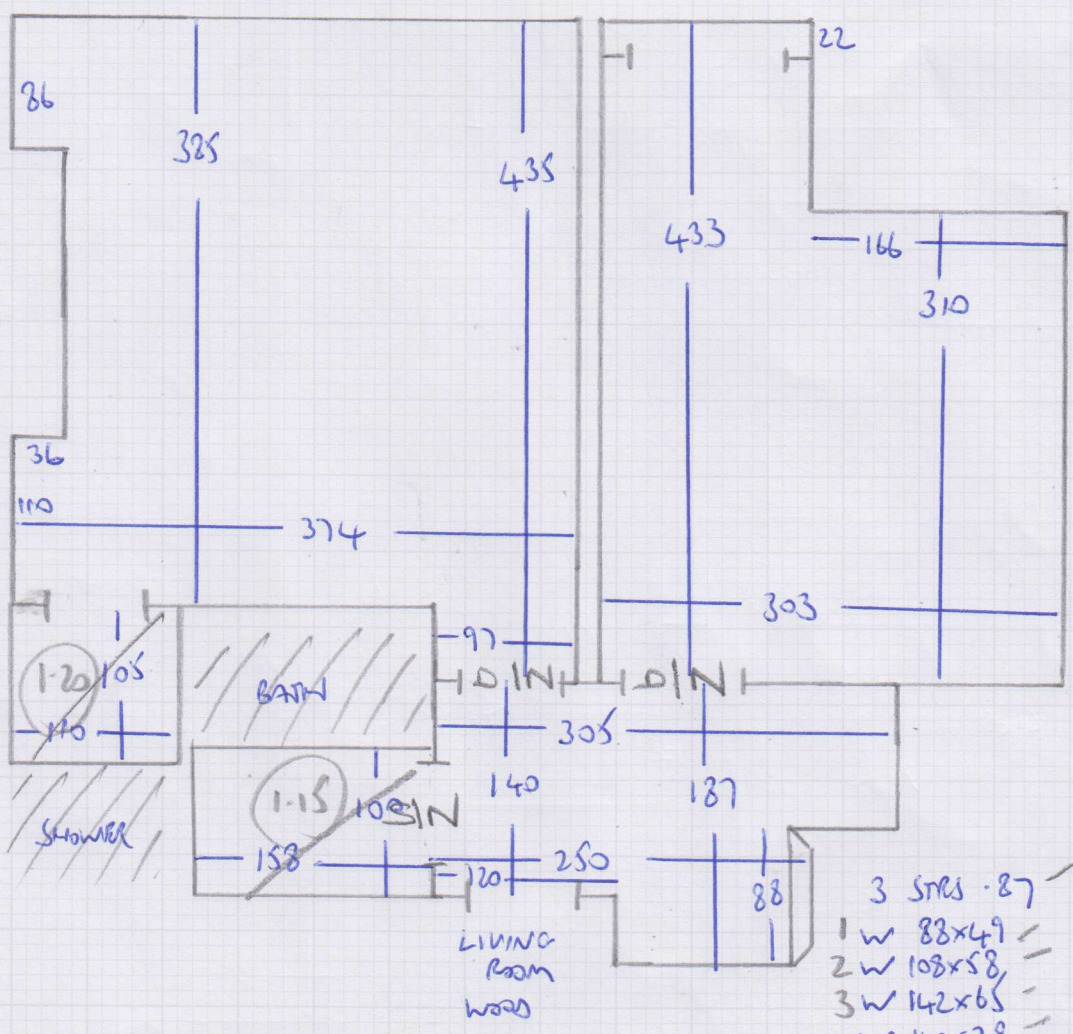 22
86
385
435
433
166
310
36
110
374
303
97
1-20
105
110
BATH
D/N
D/N
305
140
187
SHOWER
1-15
S/N
158
120
250
88
LIVING
ROOM
WOOD
3 STRS .87
1 W 88x49
2 W 108x58
3 W 142x65